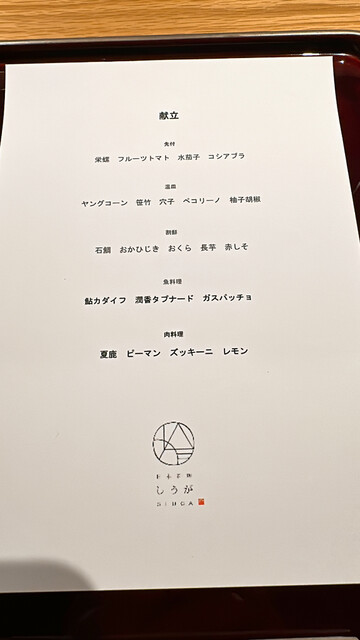 献立
先付
栄螺 フルーツトマト 水茄子 コシアブラ
温皿
ヤングコーン 笹竹 穴子 ペコリーノ 柚子胡椒
割鮮
石鯛 おかひじき おくら 長芋 赤しそ
魚料理
鮎カダイフ 潤香タプナード ガスパッチョ
肉料理
夏鹿 ピーマン ズッキーニ レモン
しうが